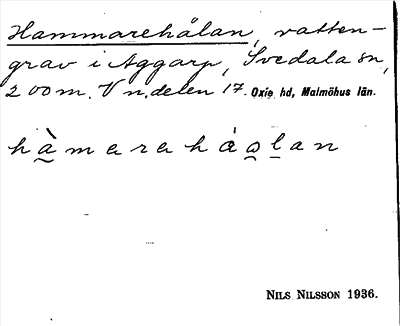 Hammarehålan, vatten-
grav i Aggarp, Svedala sn,
200 m. V n. delen 17. Oxie hd, Malmöhus län.
hàmarahåla̱n
NILS NILSSON 1936.